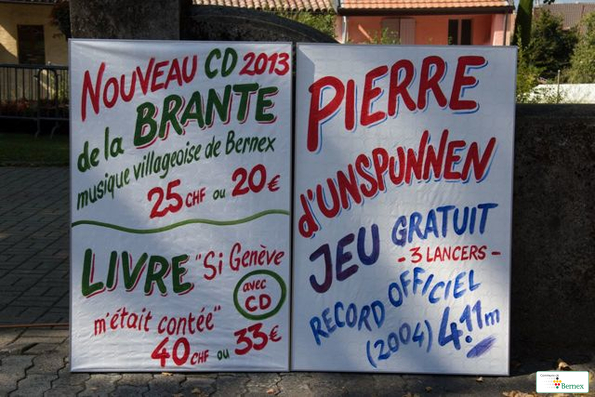 NOUVEAU CD 2013
de la BRANTE
musique villageoise de Bernex
25 CHF ou 20€
LIVRE "Si Genève
m'était contée"
avec
CD
40 CHF ou 33€
PIERRE
d'UNSPUNNEN
JEU GRATUIT
- 3 LANCERS -
RECORD OFFICIEL
(2004) 4.11m
Bernex